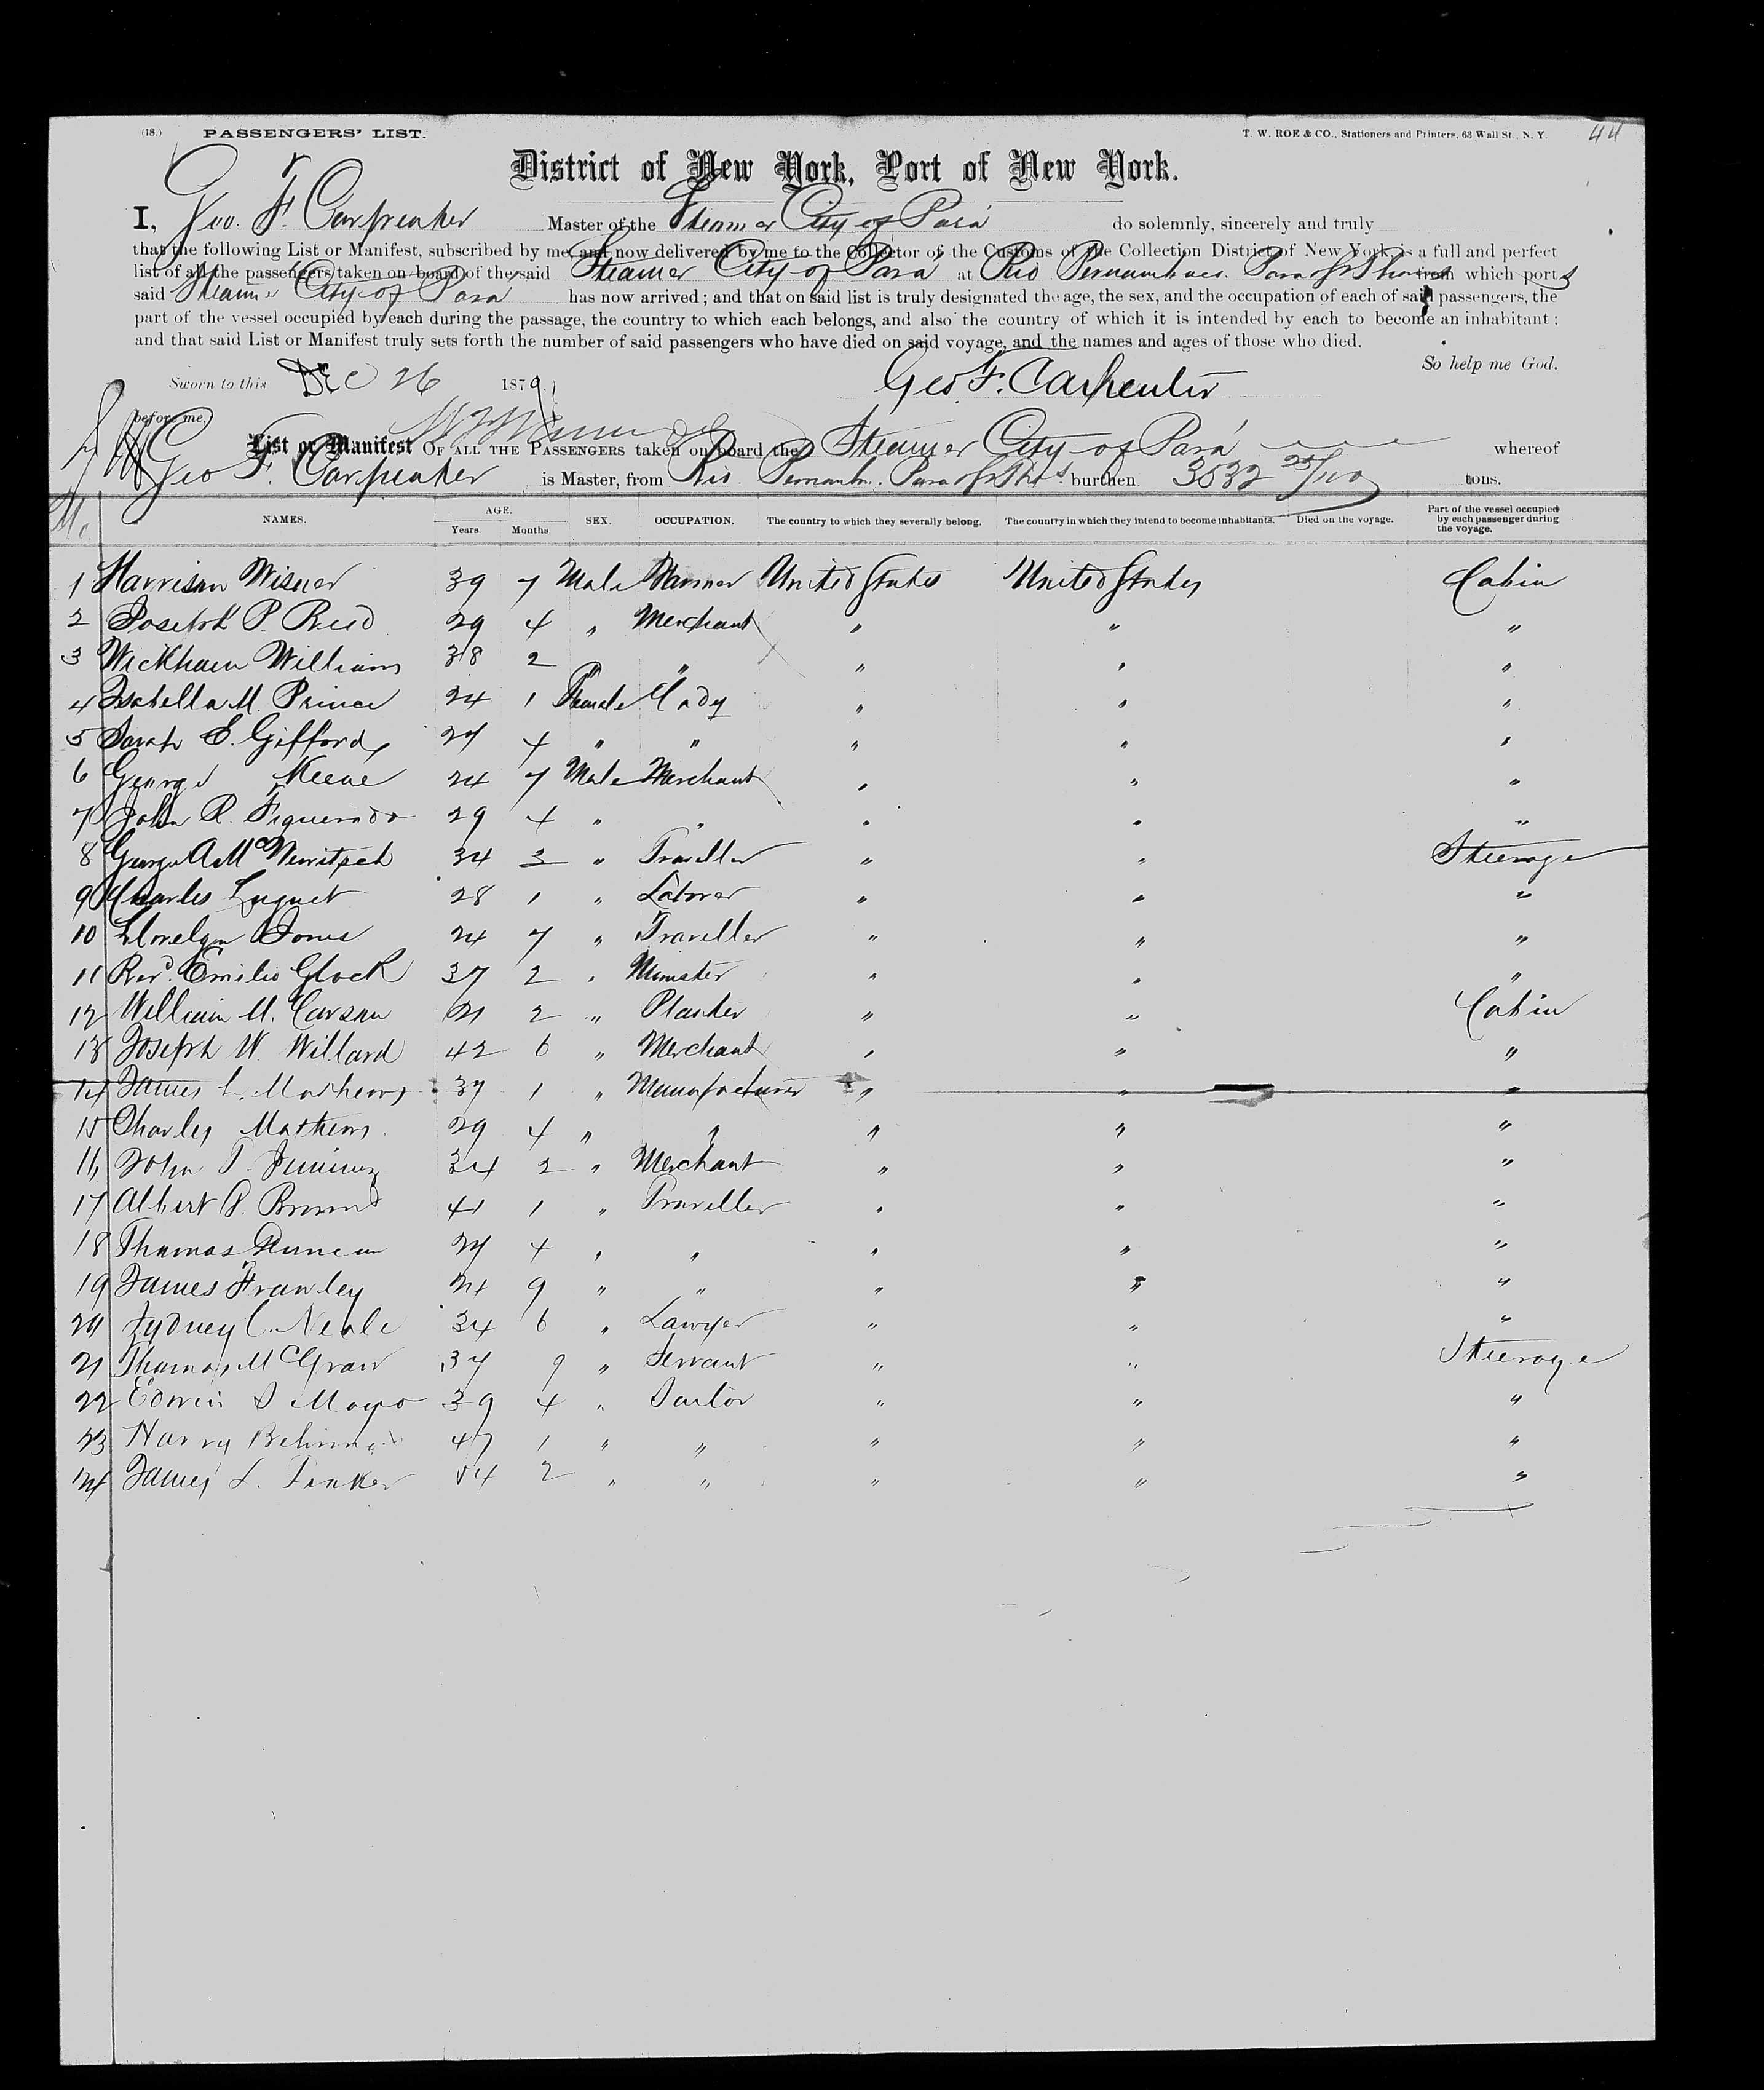 (18.) PASSENGERS' LIST. T. W. ROE & CO., Stationers and Printers, 63 Wall St., N. Y. 44
District of New York, Port of New York.
I, Geo. F. Carpenter Master of the Steamer City of Pará do solemnly, sincerely and truly
that the following List or Manifest, subscribed by me, and now delivered by me to the Collector of the Customs of the Collection District of New York, is a full and perfect
list of all the passengers taken on board of the said Steamer City of Para at Rio Pernambuco. Para & St Thomas from which ports
said Steamer City of Para has now arrived; and that on said list is truly designated the age, the sex, and the occupation of each of said passengers, the
part of the vessel occupied by each during the passage, the country to which each belongs, and also the country of which it is intended by each to become an inhabitant:
and that said List or Manifest truly sets forth the number of said passengers who have died on said voyage, and the names and ages of those who died.
So help me God.
Sworn to this DEC 26 1879 Geo. F. Carpenter
before me,
List or Manifest OF ALL THE PASSENGERS taken on board the Steamer City of Pará whereof
Geo F. Carpenter is Master, from Rio Pernamb. Para & St Thos burthen 3532 25/100 tons.
No. NAMES. AGE. Years. Months. SEX. OCCUPATION. The country to which they severally belong. The country in which they intend to become inhabitants. Died on the voyage. Part of the vessel occupied by each passenger during the voyage.
1 Harrison Wisner 39 7 Male United States United States Cabin
2 Joseph P. Reed 29 4 " Merchant " " "
3 Wickham Williams 38 2 " " " " "
4 Isabella M. Prince 24 1 Female Lady " " "
5 Sarah E. Gifford 27 4 " " " " "
6 George Keene 24 7 Male Merchant " " "
7 John R. Figueredo 29 4 " " " " "
8 George A. 34 3 " Traveller " " Steerage
9 Charles Luguet 28 1 " Laborer " " "
10 Llewelyn Jones 24 7 " Traveller " " "
11 Revd. Emilio Glock 37 2 " Minister " " "
12 William M. Carson 21 2 " Planter " " Cabin
13 Joseph W. Willard 42 6 " Merchant " " "
14 James L. Mathews 37 1 " Manufacturer " " "
15 Charles Mathews. 29 4 " " " " "
16 John T. Jiminez 34 2 " Merchant " " "
17 Albert P. Brown 41 1 " Traveller " " "
18 Thomas Duncan 27 4 " " " " "
19 James Frawley 24 9 " " " " "
20 Sydney C. Neale 34 6 " Lawyer " " "
21 Thomas McGraw 37 9 " Servant " " Steerage
22 Edwin S Mayo 39 4 " Sailor " " "
23 Harry 47 1 " " " " "
24 James L. Tinker 54 2 " " " " "